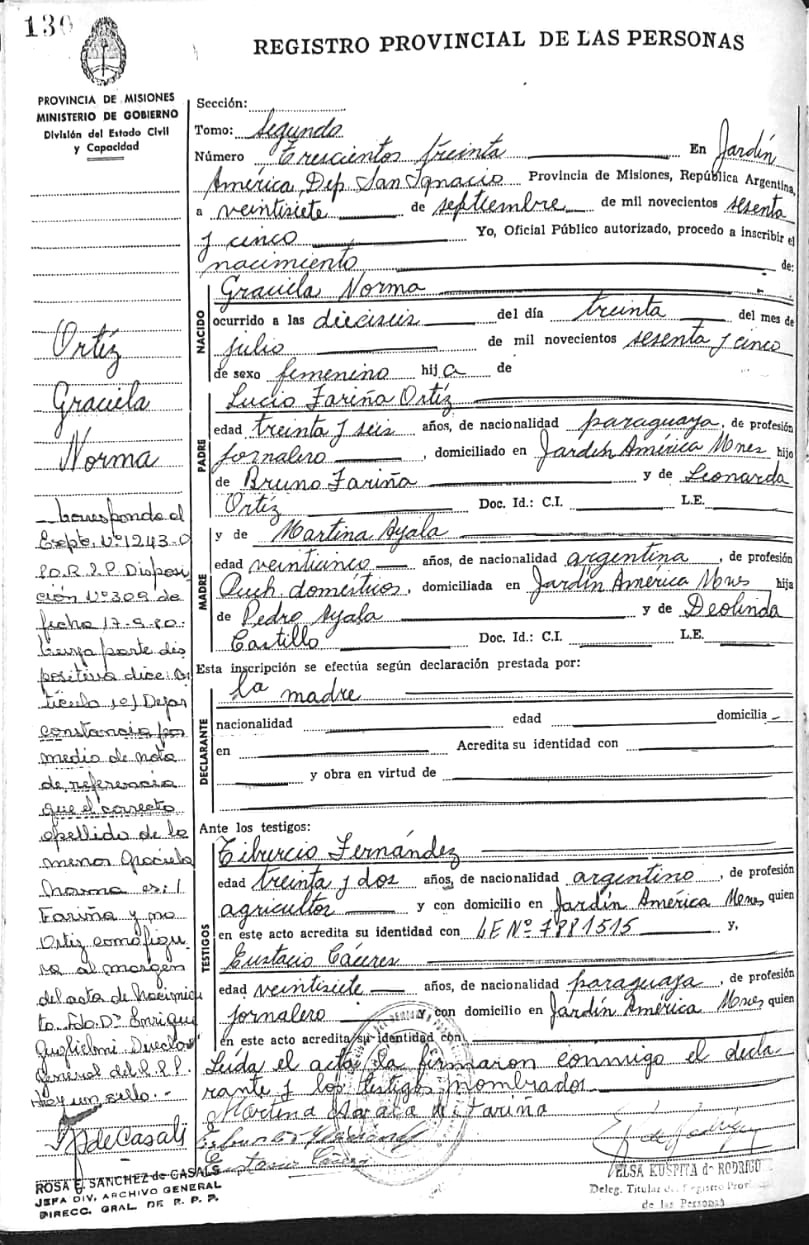 130
REGISTRO PROVINCIAL DE LAS PERSONAS
PROVINCIA DE MISIONES
MINISTERIO DE GOBIERNO
División del Estado Civil
y Capacidad
Ortíz
Graciela
Norma
Corresponde al
Expte. Nº 1243-O
P.O.R.P.P. Disposi
ción Nº 309 de
fecha 17.9.80.
Cuya parte dis
positiva dice: Ar
tículo 1º) Dejar
constancia por
medio de nota
de referencia
que el correcto
apellido de la
menor Graciela
Norma es:
Fariña y no
Ortiz como figu
ra al margen
del acta de Nacimien
to. Fdo. Dr. Enrique
Guglielmi Director
General del R.P.P.
Hay un sello.-
R S de Casals
ROSA E. SANCHEZ de CASALS
JEFA DIV. ARCHIVO GENERAL
DIRECC. GRAL. DE R. P. P.
Sección:
Tomo: Segundo
Número Trescientos treinta En Jardín
América, Dep. San Ignacio Provincia de Misiones, República Argentina,
a veintisiete de septiembre de mil novecientos sesenta
y cinco Yo, Oficial Público autorizado, procedo a inscribir el
nacimiento de:
NACIDO
Graciela Norma
ocurrido a las dieciseis del día treinta del mes de
julio de mil novecientos sesenta y cinco
de sexo femenino hija de
PADRE
Lucio Fariña Ortíz
edad treinta y seis años, de nacionalidad paraguaya, de profesión
jornalero, domiciliado en Jardín América Mnes hijo
de Bruno Fariña y de Leonarda
Ortíz Doc. Id.: C.I. L.E.
MADRE
y de Martina Ayala
edad veinticinco años, de nacionalidad argentina, de profesión
Queh. domésticos, domiciliada en Jardín América Mnes hija
de Pedro Ayala y de Deolinda
Castillo Doc. Id.: C.I. L.E.
Esta inscripción se efectúa según declaración prestada por:
DECLARANTE
la madre
nacionalidad edad domicilia
en Acredita su identidad con
y obra en virtud de
Ante los testigos:
TESTIGOS
Tiburcio Fernández
edad treinta y dos años, de nacionalidad argentino, de profesión
agricultor y con domicilio en Jardín América Mnes quien
en este acto acredita su identidad con LE Nº 7881515 y,
Eustacio Cáceres
edad veintisiete años, de nacionalidad paraguaya, de profesión
jornalero con domicilio en Jardín América Mnes quien
en este acto acredita su identidad con
Leída el acta, la firmaron conmigo el decla-
rante y los testigos nombrados
Martina de Fariña
ELSA KUSPITA de RODRIGO
Deleg. Titular del Registro Prov.
de las Personas